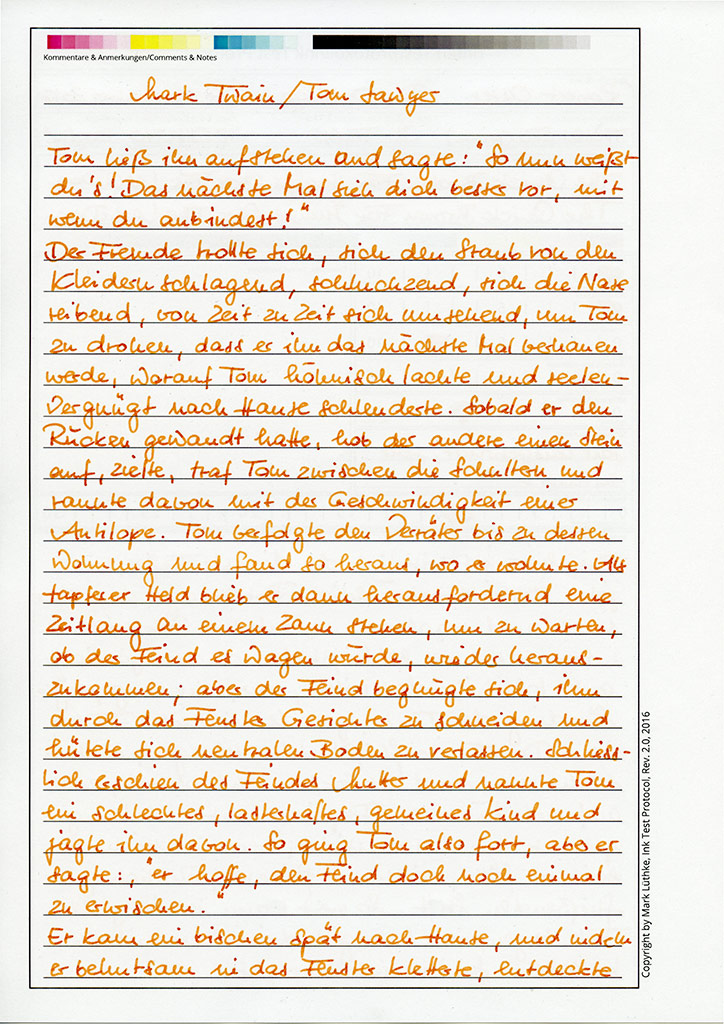 Kommentare & Anmerkungen/Comments & Notes
Mark Twain / Tom Sawyer
Tom hieß ihn aufstehen und sagte: "So nun weißt
du's! Das nächste Mal sieh dich besser vor, mit
wem du anbindest!"
Der Fremde trollte sich, sich den Staub von den
Kleidern schlagend, schluchzend, sich die Nase
reibend, von Zeit zu Zeit sich umsehend, um Tom
zu drohen, dass er ihn das nächste Mal verhauen
werde, worauf Tom höhnisch lachte und seelen-
vergnügt nach Hause schlenderte. Sobald er den
Rücken gewandt hatte, hob der andere einen Stein
auf, zielte, traf Tom zwischen die Schultern und
rannte davon mit der Geschwindigkeit einer
Antilope. Tom verfolgte den Verräter bis zu dessen
Wohnung und fand so heraus, wo er wohnte. Als
tapferer Held blieb er dann herausfordernd eine
Zeitlang an einem Zaun stehen, um zu warten,
ob der Feind es wagen würde, wieder heraus-
zukommen; aber der Feind begnügte sich, ihm
durch das Fenster Gesichter zu schneiden und
hütete sich neutralen Boden zu verlassen. Schliess-
lich erschien des Feindes Mutter und nannte Tom
ein schlechtes, lasterhaftes, gemeines Kind und
jagte ihn davon. So ging Tom also fort, aber er
sagte:, "er hoffe, den Feind doch noch einmal
zu erwischen."
Er kam ein bischen spät nach Hause, und indem
er behutsam in das Fenster kletterte, entdeckte
Copyright by Mark Lüthke, Ink Test Protocol, Rev. 2.0, 2016